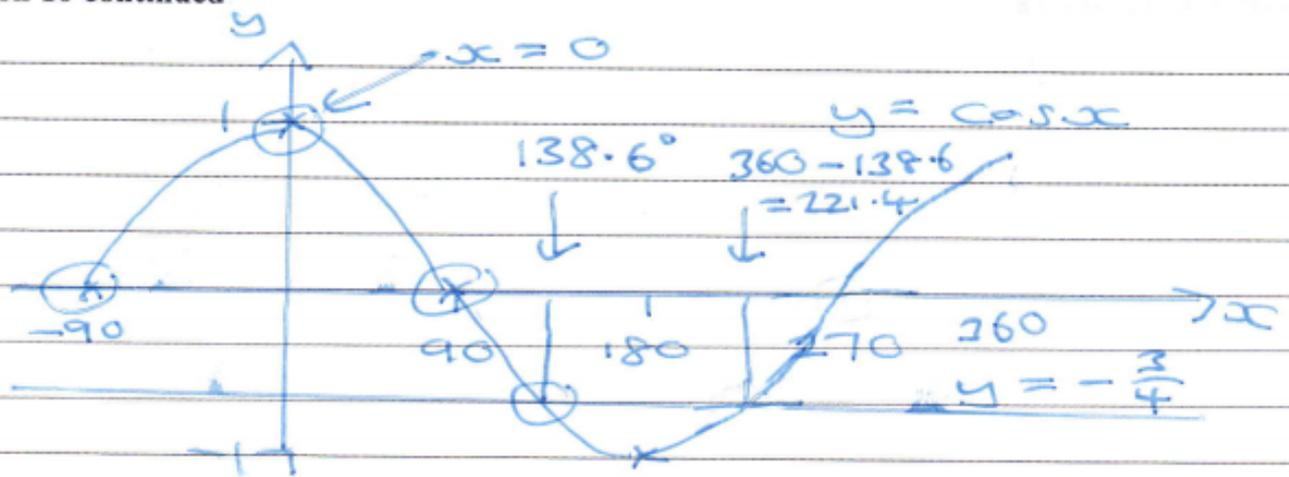 y
x = 0
1
y = cos x
138.6°
360 - 138.6
= 221.4
-90
90
180
270
360
x
y = - 3/4
-1